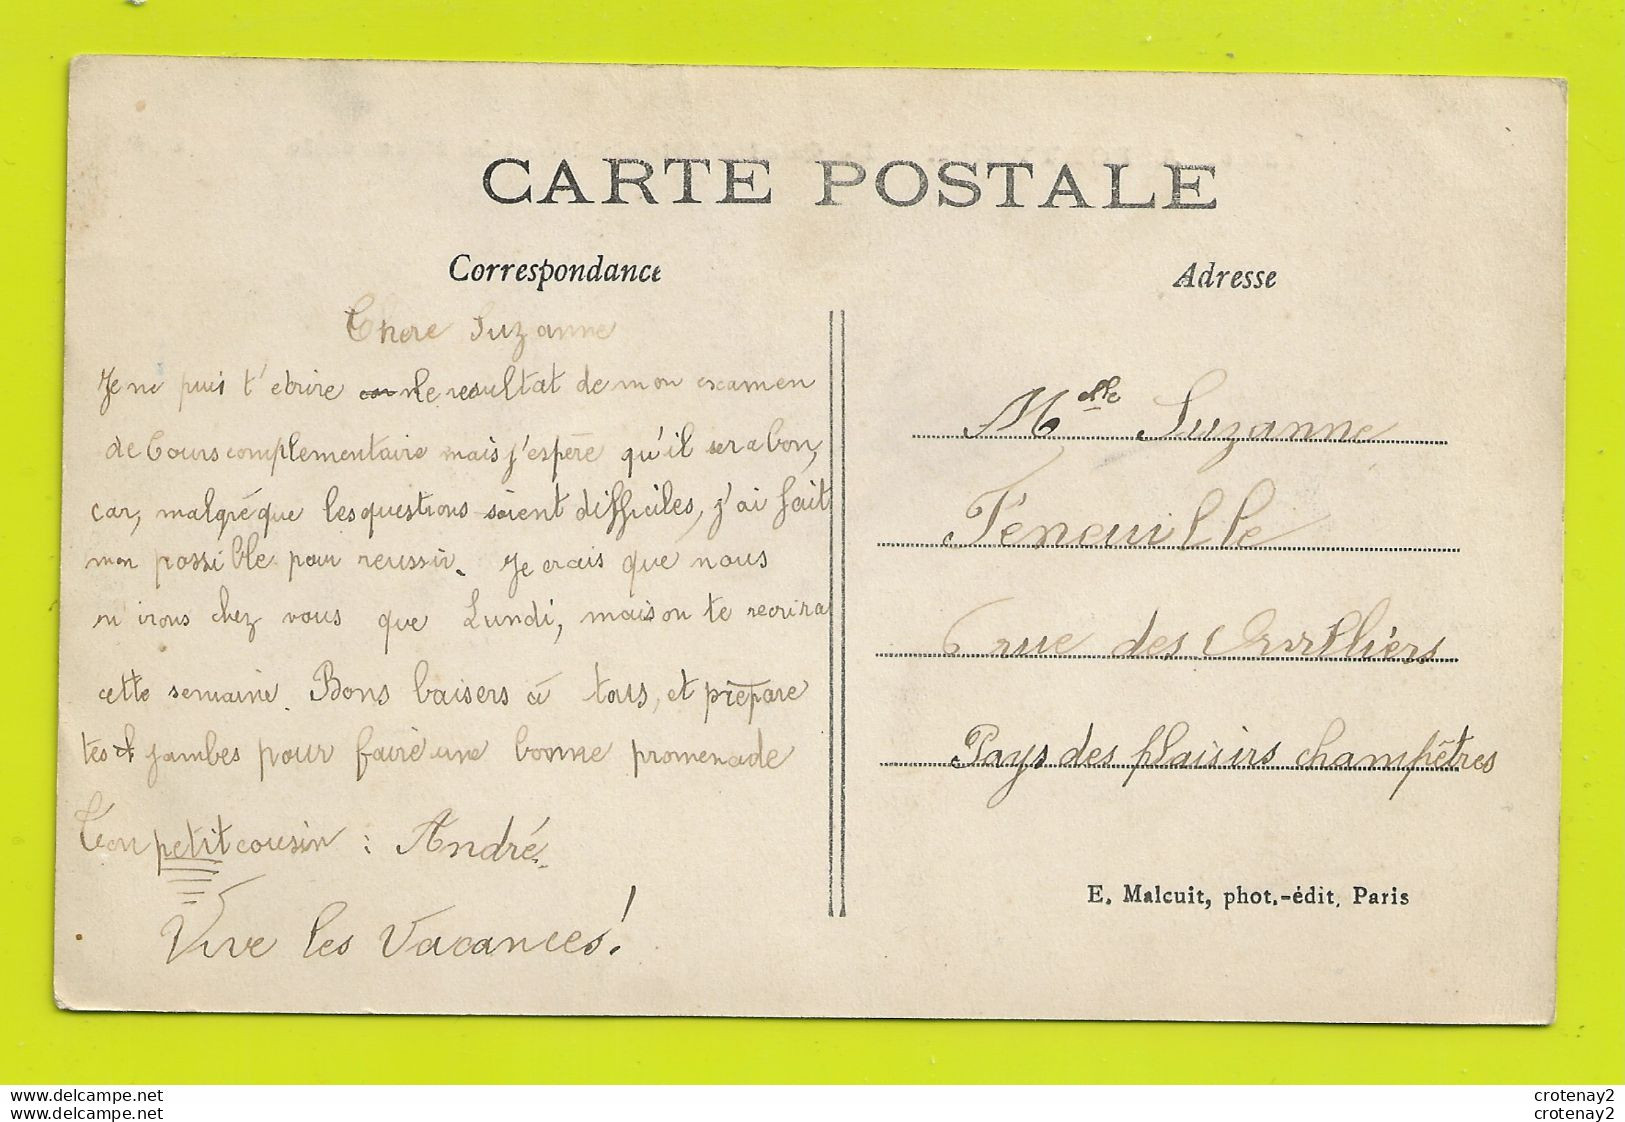 CARTE POSTALE
Correspondance
Adresse
Chere Suzanne
Je ne puis t'ecrire le resultat de mon examen
de Cours complementaire mais j'espère qu'il sera bon,
car, malgré que les questions soient difficiles, j'ai fait
mon possible pour reussir. Je crois que nous
n'irons chez vous que Lundi, mais on te recrira
cette semaine. Bons baisers à tous, et prépare
tes jambes pour faire une bonne promenade
Ton petit cousin : André.
Vive les Vacances!
Melle Suzanne
Feneuille
6 rue des
Pays des plaisirs champêtres
E. Malcuit, phot.-édit. Paris
crotenay2
crotenay2
crotenay2
crotenay2